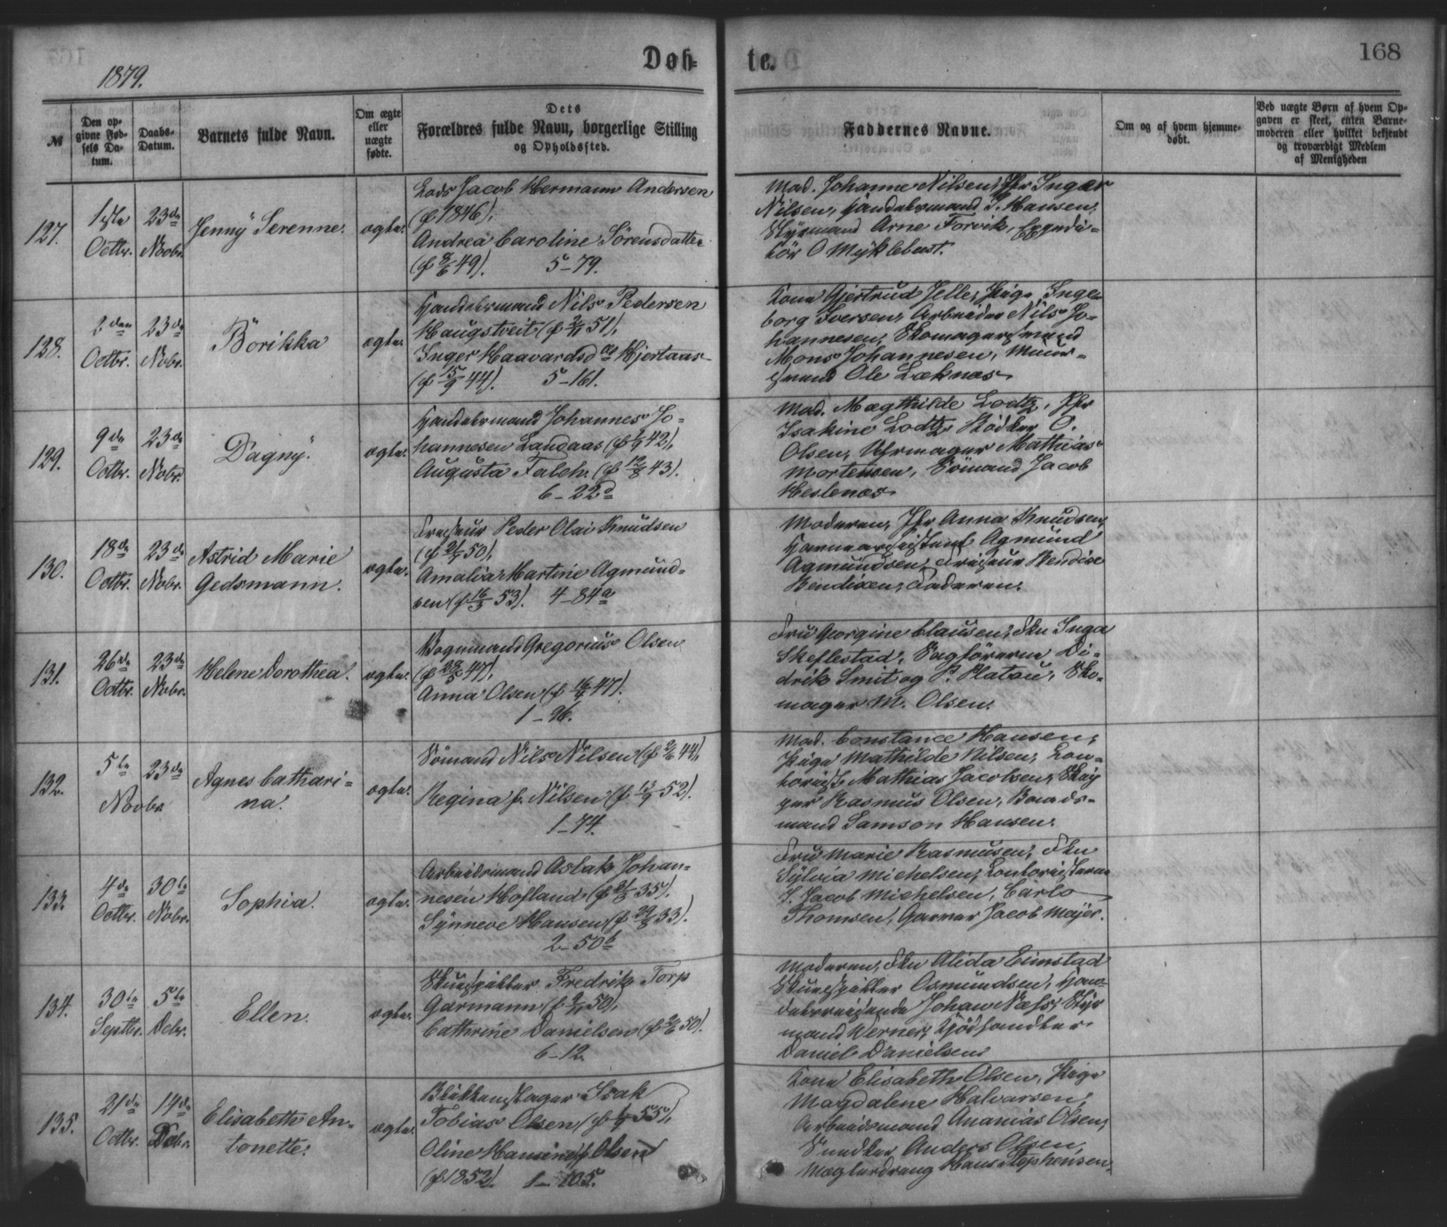 1879.
Døb-
te.
168
№
Den op-
givne Fød-
sels Da-
tum.
Daabs-
Datum.
Barnets fulde Navn.
Om ægte
eller
uægte
fødte.
Dets
Forældres fulde Navn, borgerlige Stilling
og Opholdssted.
Faddernes Navne.
Om og af hvem hjemme-
døbt.
Ved uægte Børn af hvem Op-
gaven er skeet, enten Barne-
moderen eller hvilket bekjendt
og troværdigt Medlem
af Menigheden
127.
1ste
Octbr.
23de
Novbr.
Jenny Serenne.
ægte.
Lods Jacob Hermann Andersen
(f 1846),
Andrea Caroline Sørensdatter
(f 49). 5-79.
Mad. Johanne Nilsen, Jfr Inger
Nilsen, Handelsmand P. Hansen,
Styrmand Arne Forvik, Expedi-
tör O Myklebust.
128.
2den
Octbr.
23de
Nobr.
Börikka
ægte.
Handelsmand Nils Pedersen
Haugstveit (f 51),
Inger Haavardsd Hjortaas
(f 15/9 44). 5-161.
Kone Gjertrud Jelle, Pige Inge-
borg Iversen, Arbeider Nils Jo-
hannesen, Skomagersvend
Mons Johannesen, Muur-
svend Ole Leknæs
129.
9de
Octbr.
23de
Nobr.
Dagny.
ægte.
Handelsmand Johannes Jo-
hannesen Landaas (f 42),
Augusta Falch (f 12/8 43).
6-22d
Mad. Mægthilde Lodtz, Jfr
Isakine Lodtz, Bödker O.
Olsen, Uhrmager Mathias
Mortensen, Sömand Jacob
Heslenæs
130.
18de
Octbr.
23de
Nobr.
Astrid Marie
Gedsmann.
ægte.
Friseur Peder Olai Knudsen
(f 50),
Amalia Martine Agmund-
sen (f 16/3 53). 4-84a
Moderen, Jfr Anna Knudsen,
Agmund
Agmundsen, Friseur Bendix
Bendixen, Faderen.
131.
26de
Octbr.
23de
Novbr.
Helene Dorothea.
ægte.
Vognmand Gregorius Olsen
(f 47),
Anna Olsen (f 47).
1-96.
Fru Georgine Clausen, Fkn Inga
Skeflestad, Sagföreren Di-
drik Smit og P. Platou, Sko-
mager M. Olsen.
132.
5te
Novbr
23de
Agnes Cathari-
na.
ægte.
Sömand Nils Nilsen (f 44),
Regina f. Nilsen (f 52).
1-74.
Mad. Constance Hansen,
Pige Mathilde Nilsen, Kon-
torist Mathias Jacobsen, Skræd
ger Rasmus Olsen, Baads-
mand Samson Hansen.
133.
4de
Octbr.
30te
Nobr.
Sophia.
ægte.
Arbeidsmand Aslak Johan-
nesen Hofland (f 35),
Synneve Hansen (f 33).
2-50b
Fru Marie Rasmusen, Fkn
Sylvia Michelsen, Contoristerne
J. Jacob Michelsen, Carlo
Thomsen, Garver Jacob Majer.
134.
30te
Septbr.
5te
Debr.
Ellen.
ægte.
Skuespiller Fredrik Torp
Garmann (f 50),
Cathrine Danielsen (f 50).
6-12
Moderen, Fkn Alida Eimstad
Skuespiller Osmundsen, Han-
delsreisende Johan Næss, Styr
mand Werner,
Daniel Danielsen
135.
21de
Octbr.
14de
Debr.
Elisabeth An-
tonette.
ægte.
Blikkenslager Isak
Tobias Olsen (f 53),
Oline Hansine f. Olsen
(f 1852). 1-105.
Kone Elisabeth Olsen, Pige
Magdalene Halvorsen,
Arbeidsmand Ananias Olsen,
Snedker Anders Olsen,
Mæglerdreng Hans Stephensen.